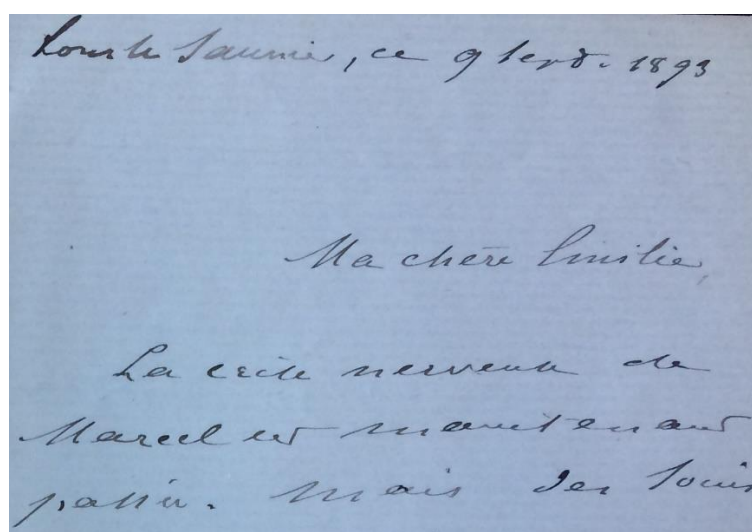 Lons le Saunier, ce 9 Sept. 1893
Ma chère Emilie,
La crise nerveuse de
Marcel est maintenant
passée. Mais des soucis